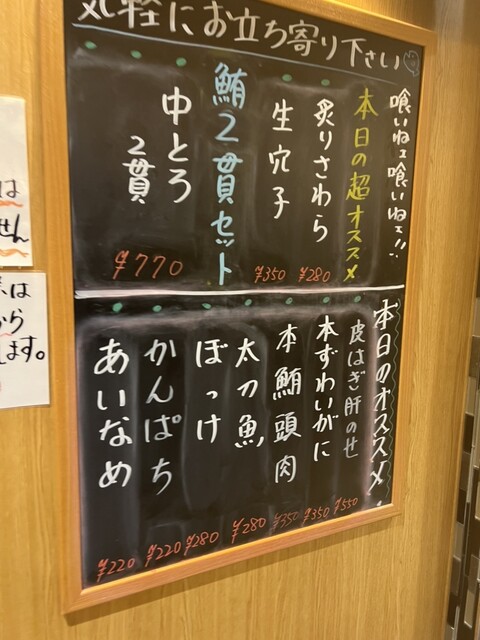 気軽にお立ち寄り下さい
喰いねェ喰いねェ!!
本日の超オススメ
炙りさわら ¥280
生穴子 ¥350
鮪2貫セット
中とろ
2貫 ¥770
本日のオススメ
皮はぎ肝のせ ¥550
本ずわいがに ¥350
本鮪頭肉 ¥350
太刀魚 ¥280
ぼっけ ¥280
かんぱち ¥220
あいなめ ¥220
は
せん
は
から
ます。